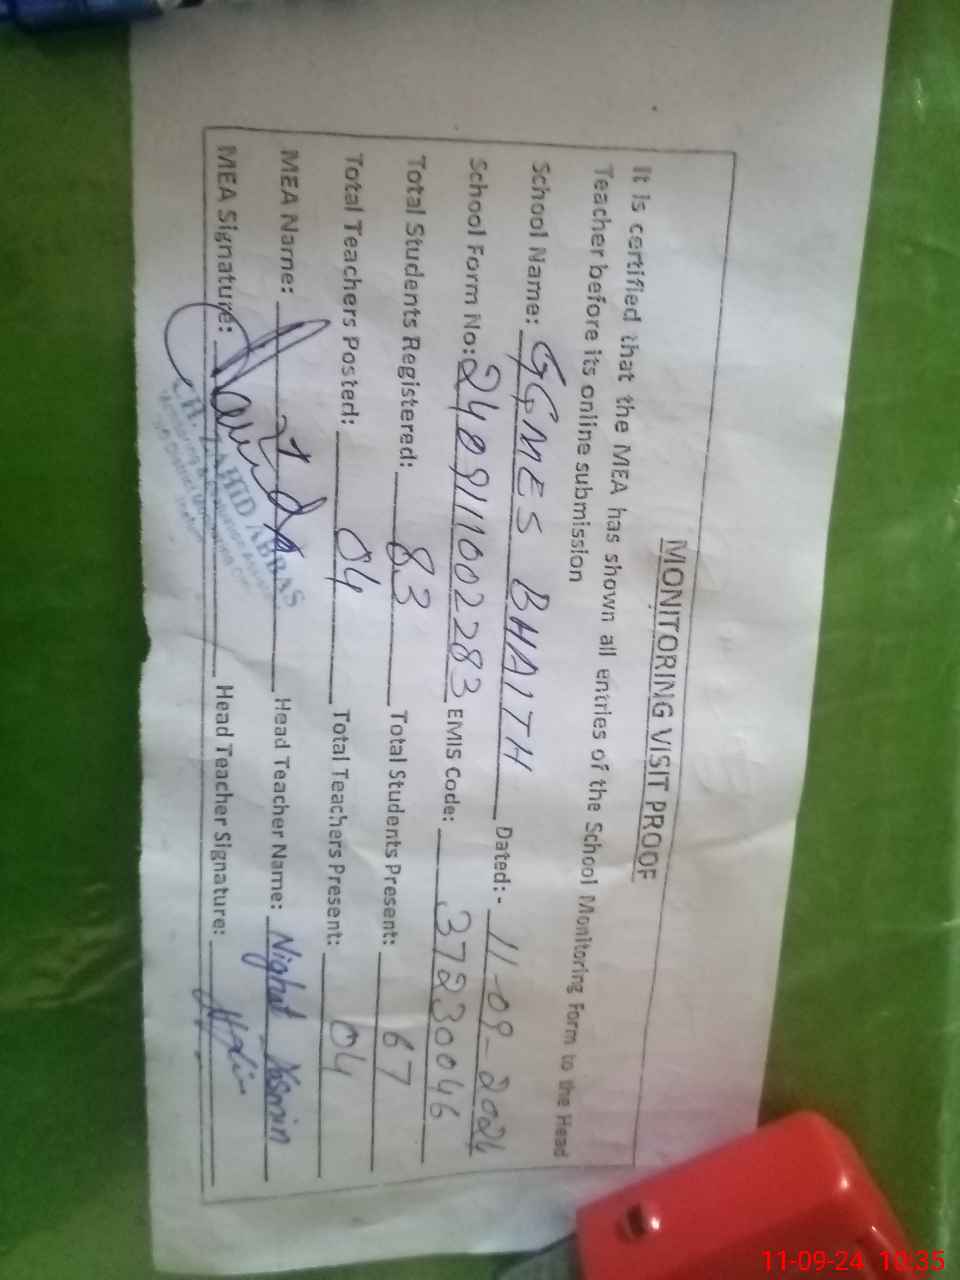 MONITORING VISIT PROOF
It is certified that the MEA has shown all entries of the School Monitoring Form to the Head
Teacher before its online submission
School Name: GGMES BHAITH Dated:- 11-09-2024
School Form No: 240911002283 EMIS Code: 37230046
Total Students Registered: 83 Total Students Present: 67
Total Teachers Posted: 04 Total Teachers Present: 04
MEA Name: Head Teacher Name: Nighat Yasmin
MEA Signature: Head Teacher Signature:
CH. ZAHID ABBAS
Monitoring & Evaluation Assistant
11-09-24 10:35